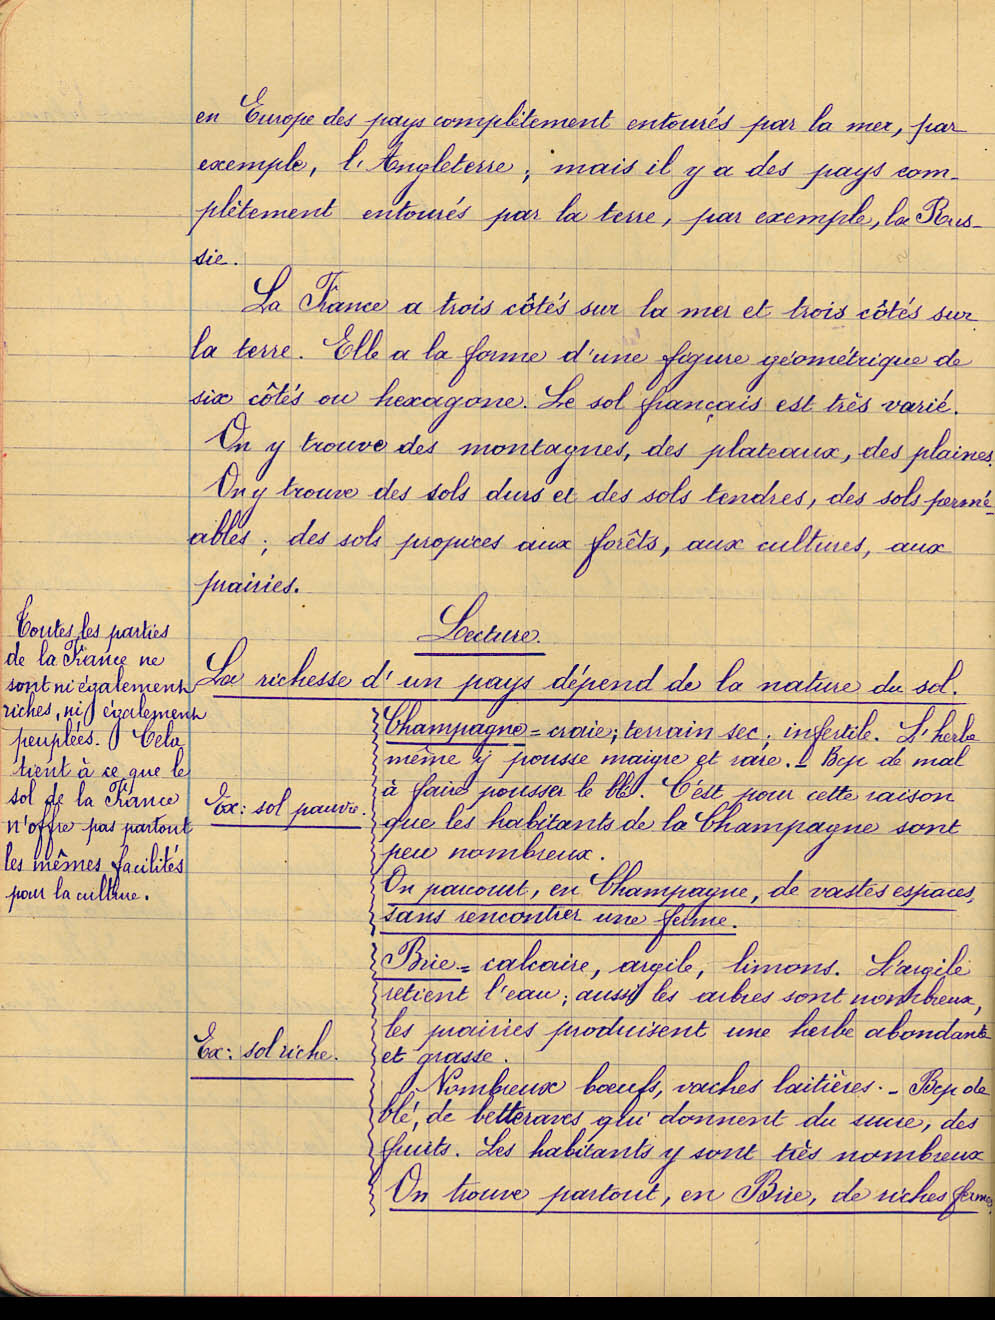 en Europe des pays complètement entourés par la mer, par
exemple, l'Angleterre ; mais il y a des pays com-
plètement entourés par la terre, par exemple, la Rus-
sie.
La France a trois côtés sur la mer et trois côtés sur
la terre. Elle a la forme d'une figure géométrique de
six côtés ou hexagone. Le sol français est très varié.
On y trouve des montagnes, des plateaux, des plaines.
On y trouve des sols durs et des sols tendres, des sols permé-
ables ; des sols propices aux forêts, aux cultures, aux
prairies.
Lecture.
Toutes les parties
de la France ne
sont ni également
riches, ni également
peuplées. Cela
tient à ce que le
sol de la France
n'offre pas partout
les mêmes facilités
pour la culture.
La richesse d'un pays dépend de la nature du sol.
Ex: sol pauvre.
Champagne = craie ; terrain sec ; infertile. L'herbe
même y pousse maigre et rare. - Bcp de mal
à faire pousser le blé. C'est pour cette raison
que les habitants de la Champagne sont
peu nombreux.
On parcourt, en Champagne, de vastes espaces,
sans rencontrer une ferme.
Ex: sol riche.
Brie = calcaire, argile, limons. L'argile
retient l'eau ; aussi les arbres sont nombreux,
les prairies produisent une herbe abondante
et grasse.
Nombreux bœufs, vaches laitières. - Bcp de
blé, de betteraves qui donnent du sucre, des
fruits. Les habitants y sont très nombreux
On trouve partout, en Brie, de riches fermes.